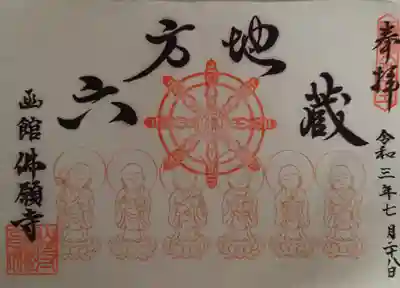 奉拝
令和三年七月廿八日
六方地蔵
函館佛願寺